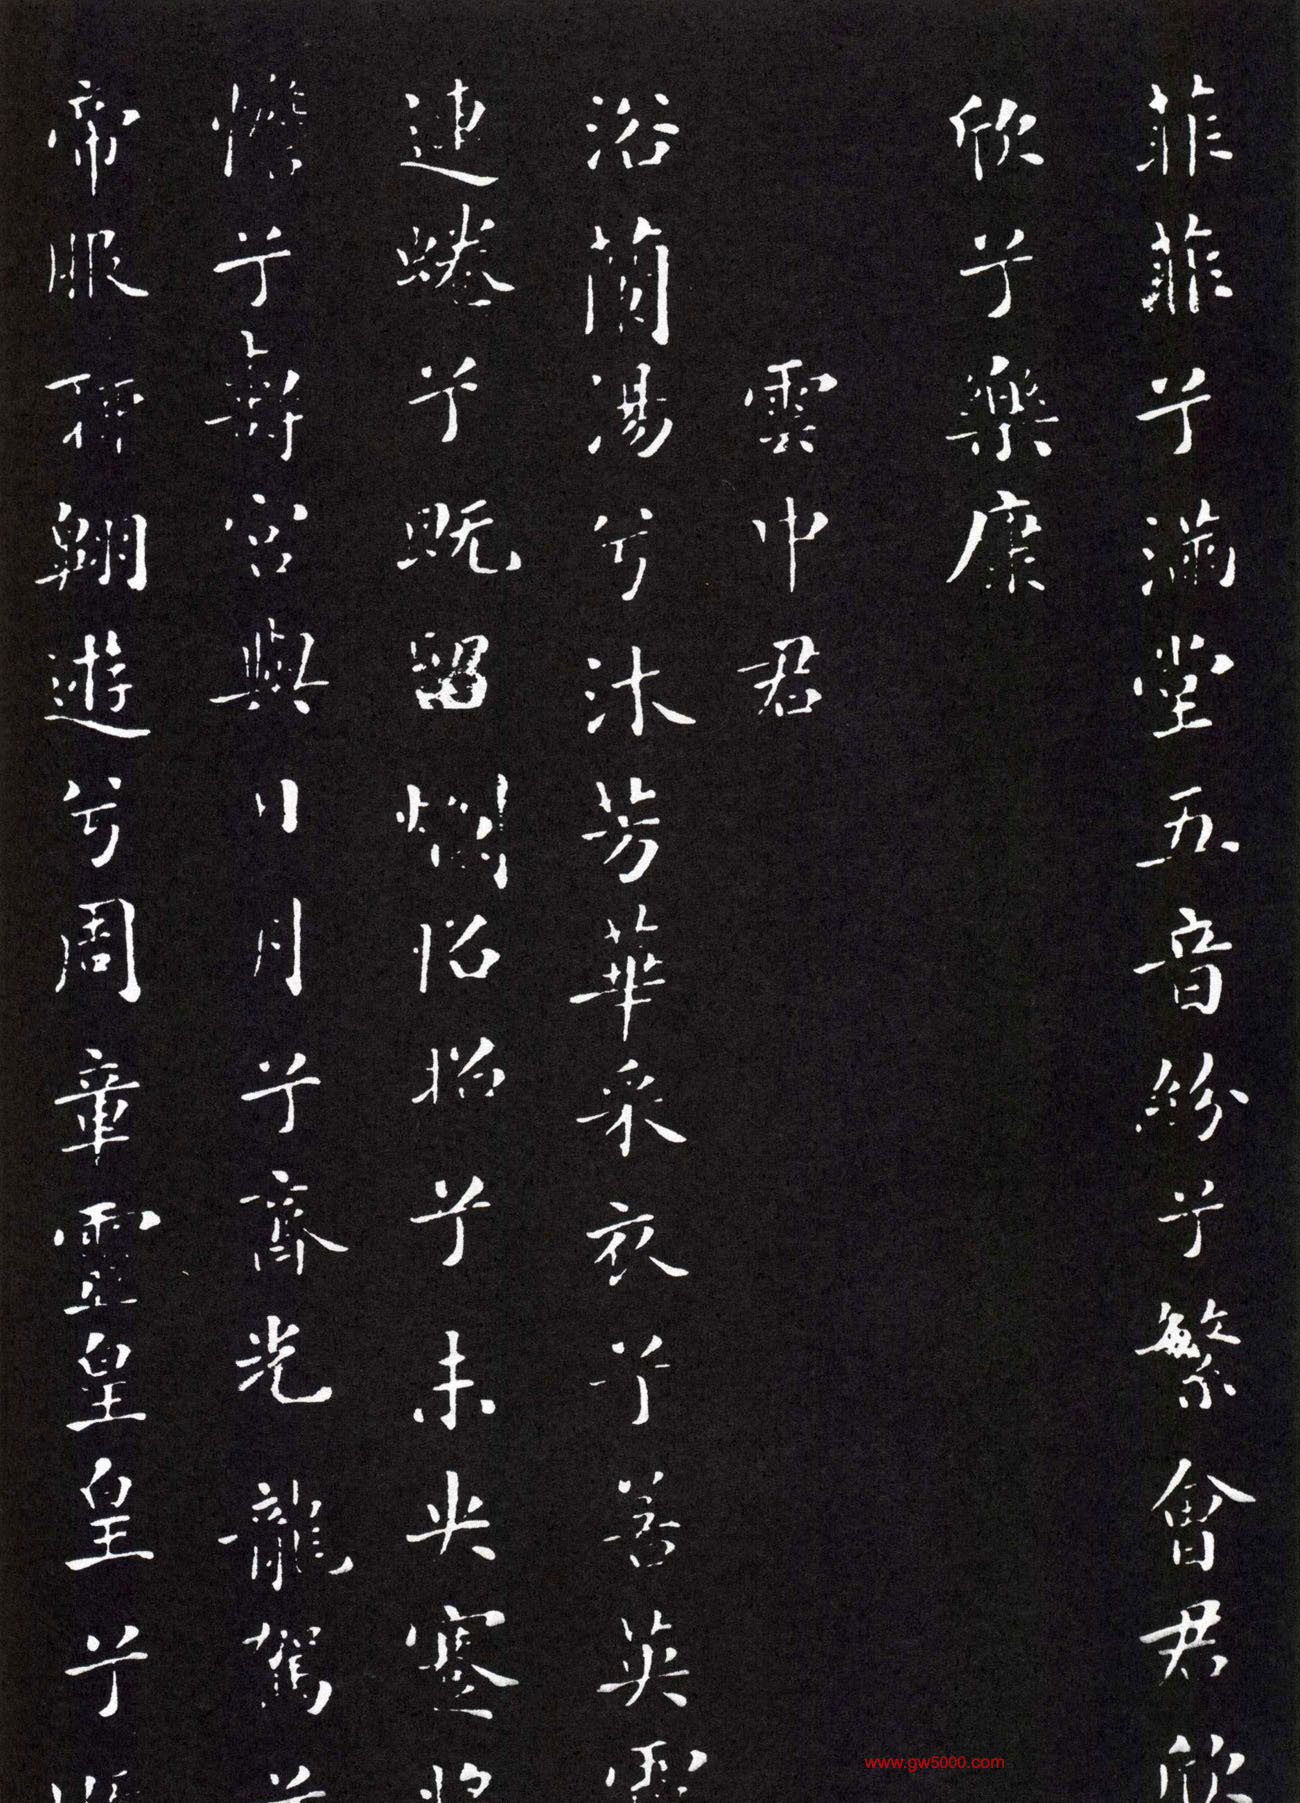 菲菲兮滿堂五音紛兮繁會君欣
欣兮樂康
雲中君
浴蘭湯兮沐芳華采衣兮若英靈
連蜷兮既留爛昭昭兮未央蹇將
憺兮壽宮與日月兮齊光龍駕兮
帝服聊翱遊兮周章靈皇皇兮既
www.gw5000.com